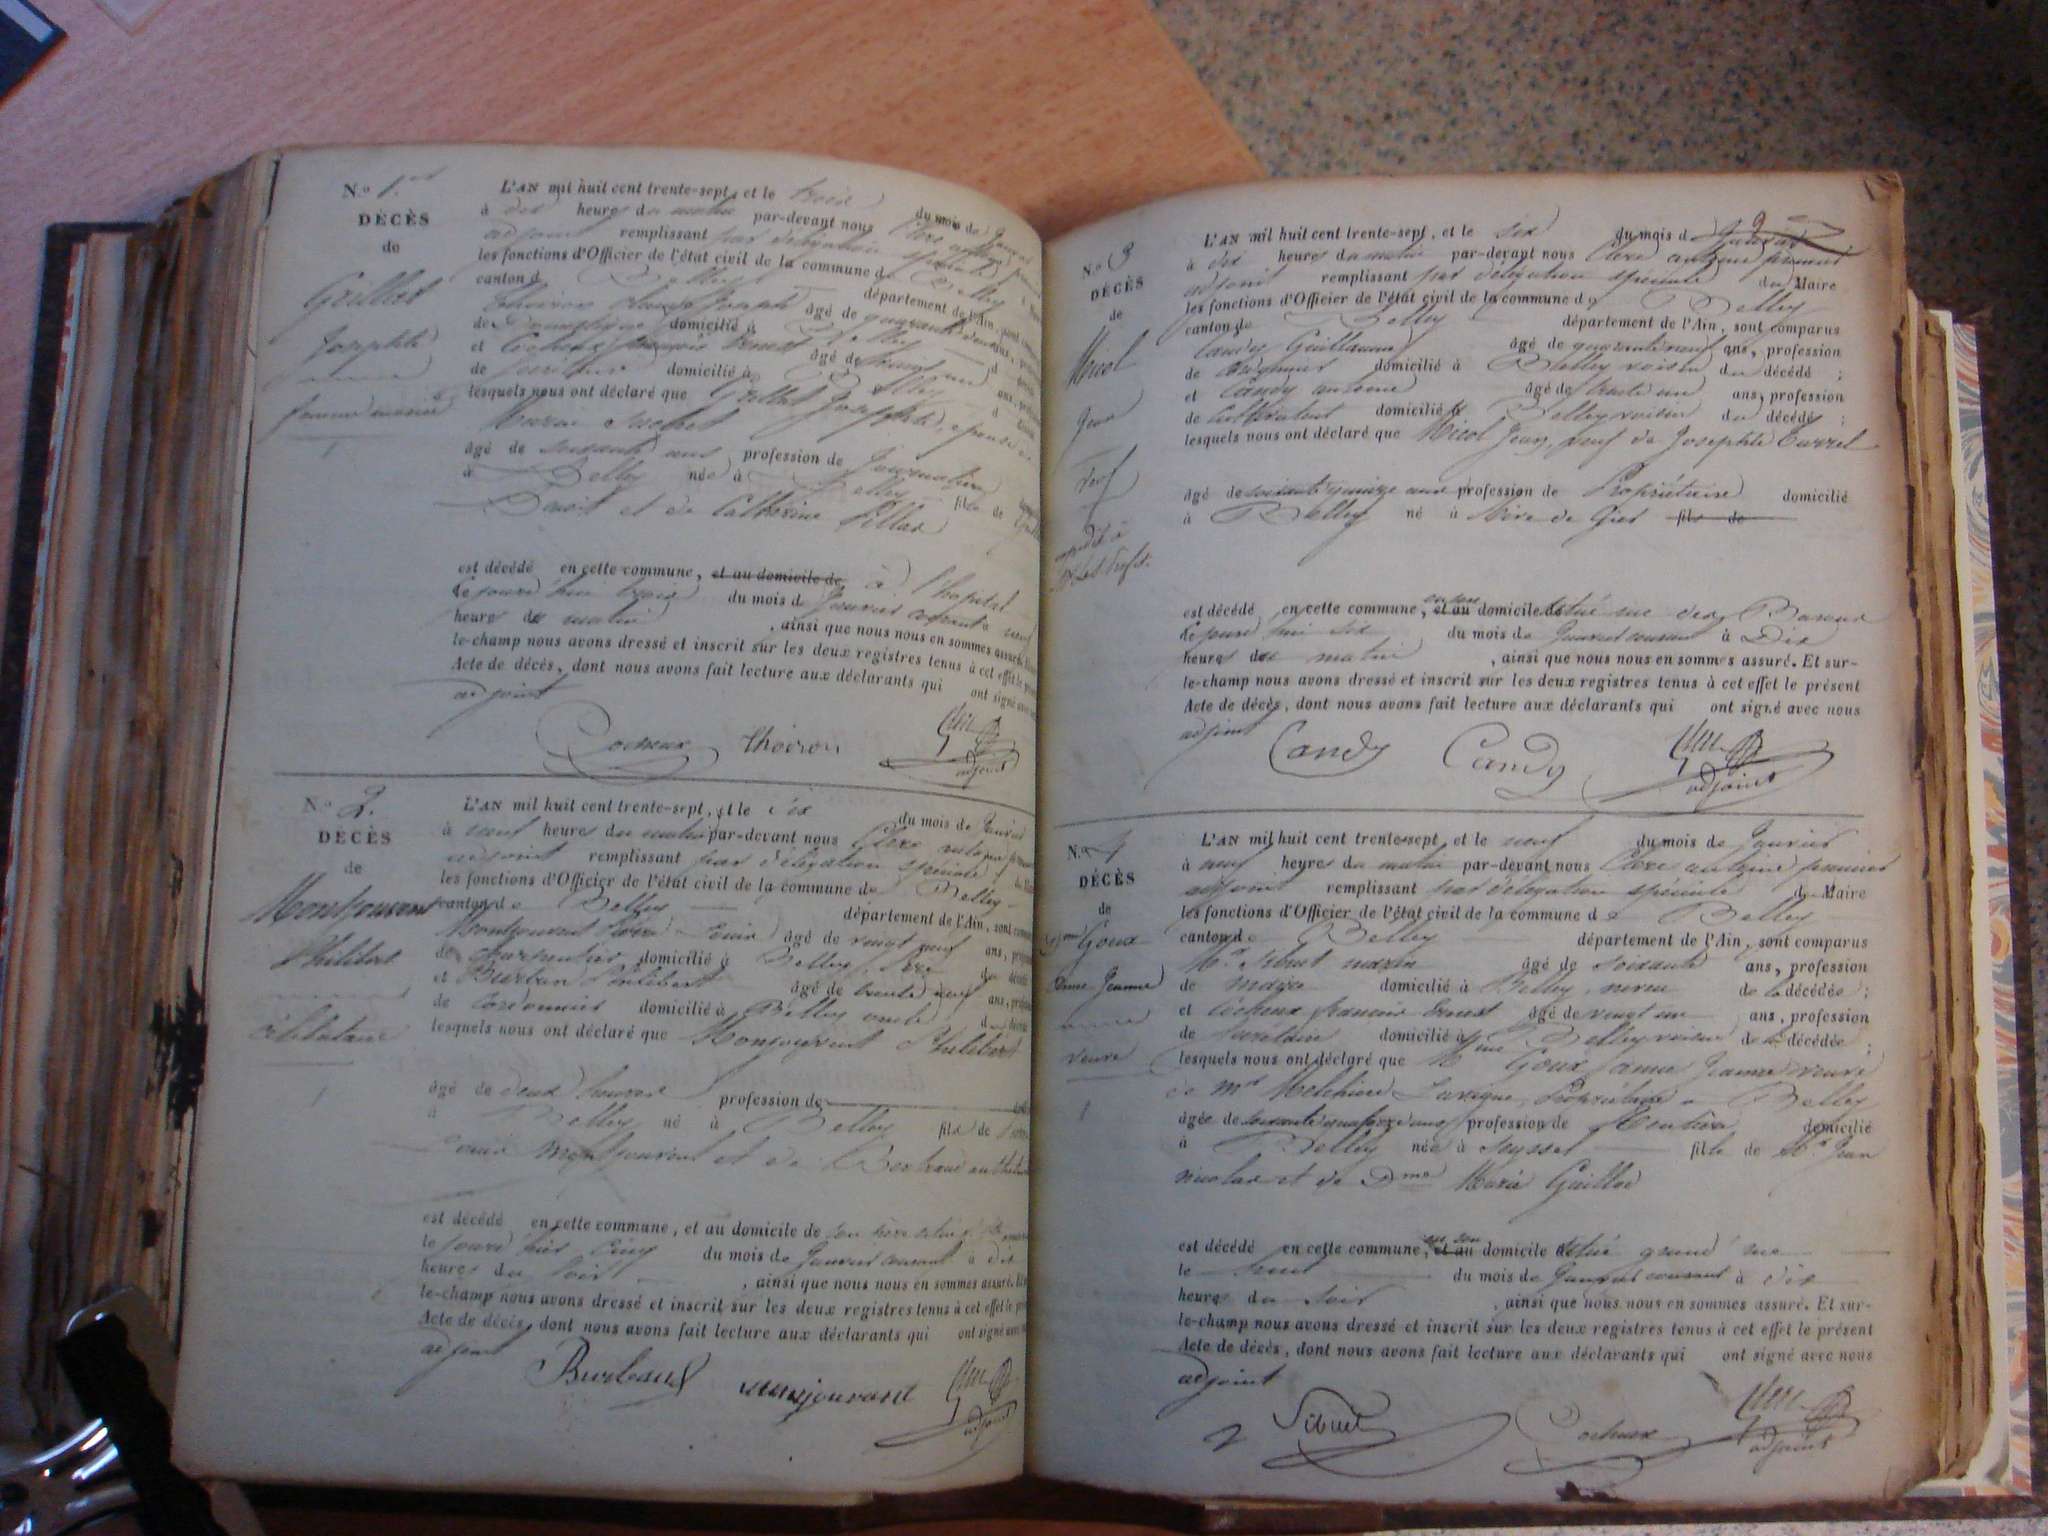 N.º 1.er
DÉCÈS
de
Grillet
Josephte
femme mariée
L'AN mil huit cent trente-sept, et le trois du mois de Janvier
à dix heures du matin par-devant nous Clerc
adjoint remplissant par délégation spéciale
les fonctions d'Officier de l'état civil de la commune de Belley
canton de Belley département de l'Ain, sont
Thoiron Joseph âgé de quarante
de domicilié à Belley
et Cocheux françois Ernest âgé de vingt un ans,
de secrétaire domicilié à Belley
lesquels nous ont déclaré que Grillet Josephte, épouse de
âgé de soixante ans profession de Journalière
à Belley née à Belley fille de
Benoit et de Catherine
est décédé en cette commune, et au domicile de à l'hopital
le jourd'hui trois du mois de Janvier courant à neuf
heures du matin, ainsi que nous nous en sommes assuré.
le-champ nous avons dressé et inscrit sur les deux registres tenus à cet effet le
Acte de décès, dont nous avons fait lecture aux déclarants qui ont signé avec
adjoint
Cocheux Thoiron Clerc
adjoint
N.º 2.
DÉCÈS
de
Montjouvent
Philibert
célibataire
L'AN mil huit cent trente-sept, et le six du mois de Janvier
à neuf heures du matin par-devant nous Clerc
adjoint remplissant par délégation spéciale
les fonctions d'Officier de l'état civil de la commune de Belley
canton de Belley département de l'Ain, sont
Montjouvent Louis âgé de vingt neuf ans,
de charpentier domicilié à Belley, père du décédé
et Philibert âgé de trente neuf ans,
de Cordonnier domicilié à Belley oncle du
lesquels nous ont déclaré que Monjouvent Philibert
âgé de deux heures profession de
à Belley né à Belley fils de
Louis Montjouvent et de
est décédé en cette commune, et au domicile de son père situé
le jour d'hier cinq du mois de Janvier courant à dix
heures du soir, ainsi que nous nous en sommes assuré.
le-champ nous avons dressé et inscrit sur les deux registres tenus à cet effet le
Acte de décès, dont nous avons fait lecture aux déclarants qui ont signé avec
adjoint
monjouvent Clerc
adjoint
N.º 3
DÉCÈS
de
Micol
Jean
veuf
L'AN mil huit cent trente-sept, et le six du mois de Janvier
à dix heures du matin par-devant nous Clerc antoine premier
adjoint remplissant par délégation spéciale du Maire
les fonctions d'Officier de l'état civil de la commune de Belley
canton de Belley département de l'Ain, sont comparus
Candy Guillaume âgé de quarante neuf ans, profession
de domicilié à Belley voisin du décédé ;
et Candy antoine âgé de trente un ans, profession
de Cultivateur domicilié à Belley voisin du décédé ;
lesquels nous ont déclaré que Micol Jean, veuf de Josephte Carrel
âgé de soixante quinze ans profession de Propriétaire domicilié
à Belley né à Rive de Gier fils de
est décédé en cette commune, et au en son domicile situé rue des Baraux
le jourd'hui six du mois de Janvier courant à Dix
heures du matin, ainsi que nous nous en sommes assuré. Et sur-
le-champ nous avons dressé et inscrit sur les deux registres tenus à cet effet le présent
Acte de décès, dont nous avons fait lecture aux déclarants qui ont signé avec nous
adjoint
Candy Candy Clerc
adjoint
N.º 4
DÉCÈS
de
Goux
Anne Jeanne
veuve
L'AN mil huit cent trente-sept, et le neuf du mois de Janvier
à neuf heures du matin par-devant nous Clerc antoine premier
adjoint remplissant par délégation spéciale du Maire
les fonctions d'Officier de l'état civil de la commune de Belley
canton de Belley département de l'Ain, sont comparus
Mr Sibuet âgé de soixante ans, profession
de maire domicilié à Belley, neveu de la décédée ;
et Cocheux françois Ernest âgé de vingt un ans, profession
de secrétaire domicilié à Belley voisin de la décédée ;
lesquels nous ont déclaré que Mme Goux anne Jeanne veuve
de Mr Melchior Propriétaire à Belley
âgée de soixante quatorze ans profession de Rentière domicilié
à Belley née à Seyssel fille de Mr Jean
nicolas et de Dme Marie
est décédé en cette commune, et au en son domicile situé grand'rue
le du mois de Janvier courant à dix
heures du soir, ainsi que nous nous en sommes assuré. Et sur-
le-champ nous avons dressé et inscrit sur les deux registres tenus à cet effet le présent
Acte de décès, dont nous avons fait lecture aux déclarants qui ont signé avec nous
adjoint
2 Sibuet Cocheux Clerc
adjoint